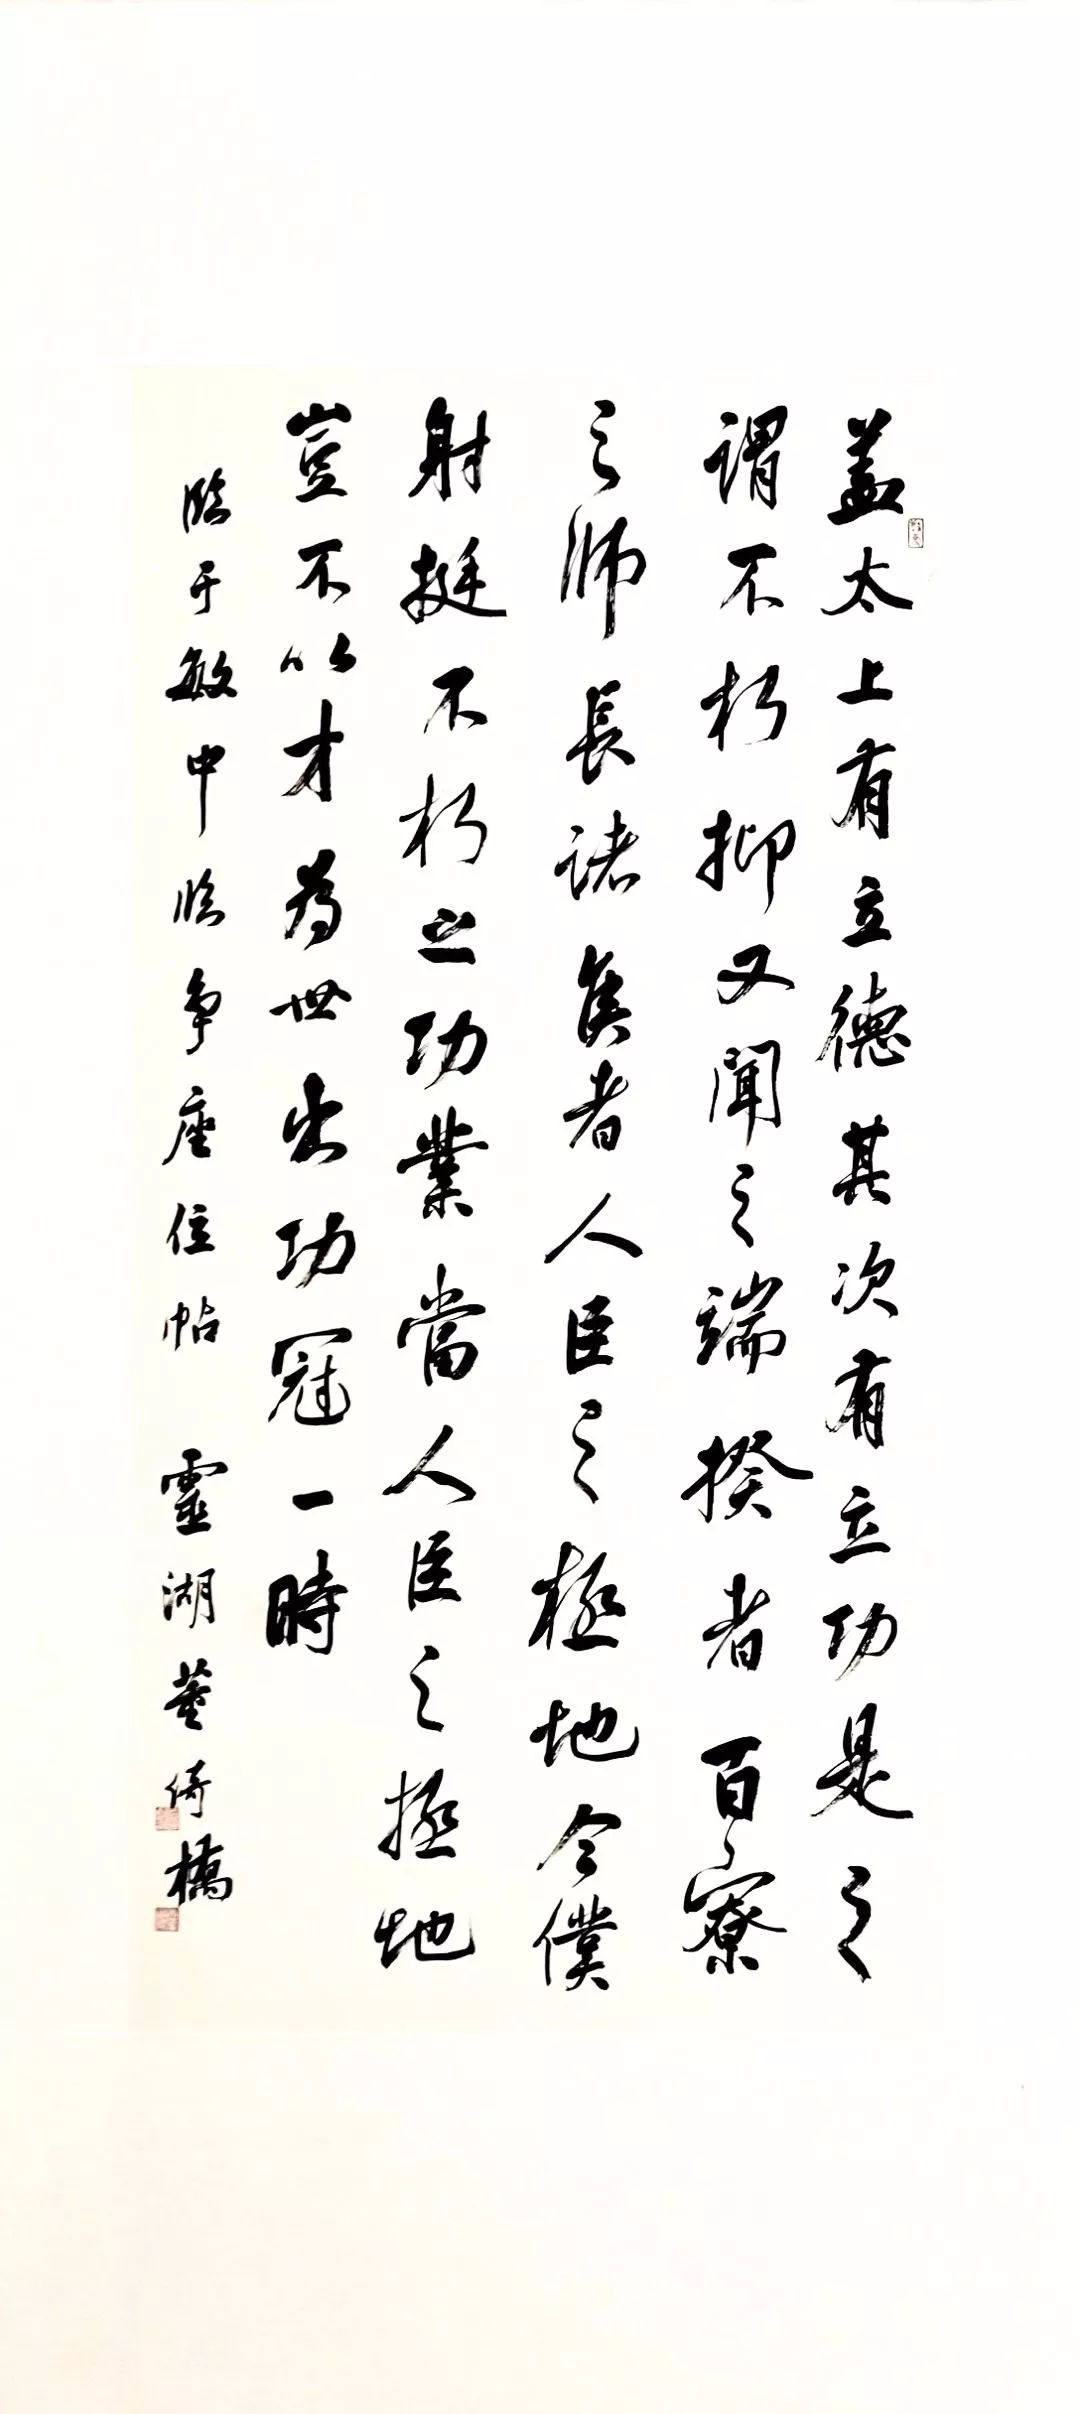 蓋太上有立德其次有立功是之
謂不朽抑又聞之端揆者百寮
之師長諸矦者人臣之極地今僕
射挺不朽之功業當人臣之極地
豈不以才為世出功冠一時
臨于敏中臨争座位帖 靈湖 倚橋